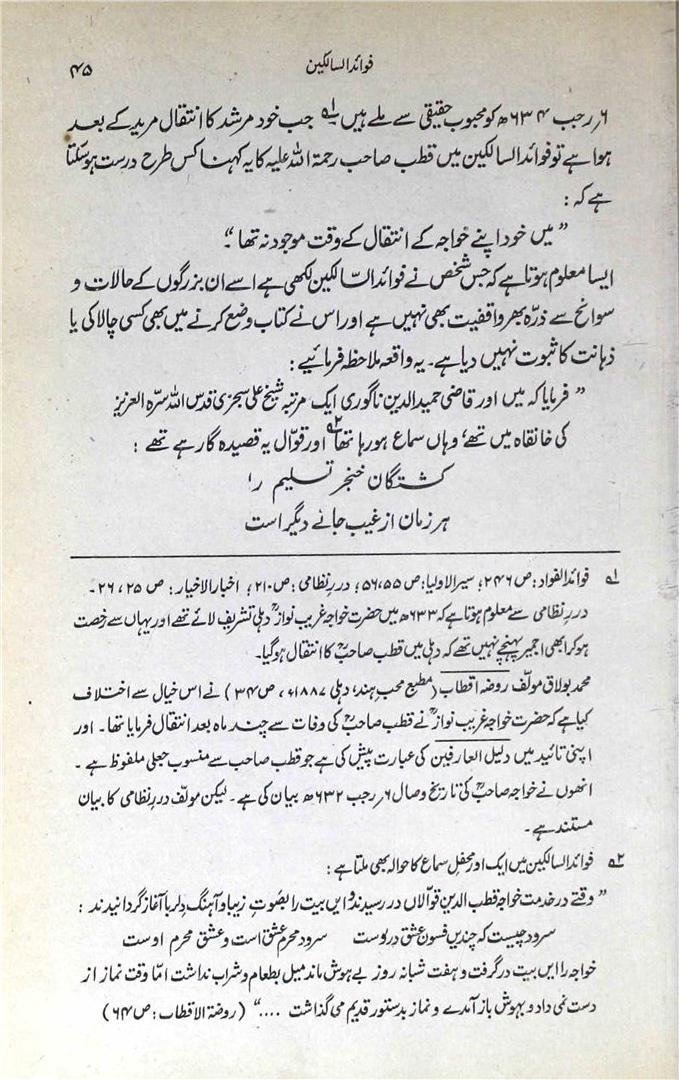 فوائد السالکین
۴۵
۶؍ رجب ۶۳۴ھ کو محبوب حقیقی سے ملے ہیں ؎۱ جب خود مرشد کا انتقال مرید کے بعد
ہوا ہے تو فوائد السالکین میں قطب صاحب رحمۃ اللہ علیہ کا یہ کہنا کس طرح درست ہوسکتا
ہے کہ :
” میں خود اپنے خواجہ کے انتقال کے وقت موجود نہ تھا “۔
ایسا معلوم ہوتا ہے کہ جس شخص نے فوائد السّالکین لکھی ہے اسے ان بزرگوں کے حالات و
سوانح سے ذرّہ بھر واقفیت بھی نہیں ہے اور اس نے کتاب وضع کرنے میں بھی کسی چالاکی یا
ذہانت کا ثبوت نہیں دیا ہے۔ یہ واقعہ ملاحظہ فرمائیے :
” فرمایا کہ میں اور قاضی حمید الدین ناگوری ایک مرتبہ شیخ علی سجزی قدس اللہ سرّہ العزیز
کی خانقاہ میں تھے، وہاں سماع ہو رہا تھا ؎۲ اور قوّال یہ قصیدہ گا رہے تھے :
کشتگان خنجر تسلیم را
ہر زمان از غیب جانے دیگر است
؎۱ فوائد الفواد : ص ۲۴۶؛ سیر الاولیا : ص ۵۵، ۵۶؛ درر نظامی : ص ۲۱۰؛ اخبار الاخیار : ص ۲۵، ۲۶۔
درر نظامی سے معلوم ہوتا ہے کہ ۶۳۳ھ میں حضرت خواجہ غریب نوازؒ دہلی تشریف لائے تھے اور یہاں سے رخصت
ہوکر ابھی اجمیر پہنچے نہیں تھے کہ دہلی میں قطب صاحبؒ کا انتقال ہوگیا۔
محمد بولاق مولّف روضہ اقطاب (مطبع محب ہند، دہلی ۱۸۸۷ء، ص ۳۴) نے اس خیال سے اختلاف
کیا ہے کہ حضرت خواجہ غریب نوازؒ نے قطب صاحبؒ کی وفات سے چند ماہ بعد انتقال فرمایا تھا۔ اور
اپنی تائید میں دلیل العارفین کی عبارت پیش کی ہے جو قطب صاحب سے منسوب جعلی ملفوظ ہے۔
انھوں نے خواجہ صاحبؒ کی تاریخ وصال ۶؍ رجب ۶۳۲ھ بیان کی ہے۔ لیکن مولّف درر نظامی کا بیان
مستند ہے۔
؎۲ فوائد السالکین میں ایک اور محفل سماع کا حوالہ بھی ملتا ہے :
” وقتے در خدمت خواجہ قطب الدین قوّالاں در رسیدند و ایں بیت را بصَوتِ زیبا و آہنگ دلربا آغاز گردانیدند :
سرود چیست کہ چندیں فسون عشق در وست     سرود محرم عشق است و عشق محرم اوست
خواجہ را ایں بیت در گرفت و ہفت شبانہ روز بے ہوش ماند میل بطعام و شراب نداشت امّا وقت نماز از
دست نمی داد و بہوش باز آمدے و نماز بدستور قدیم می گذاشت ....“ (روضۃ الاقطاب : ص ۶۴)